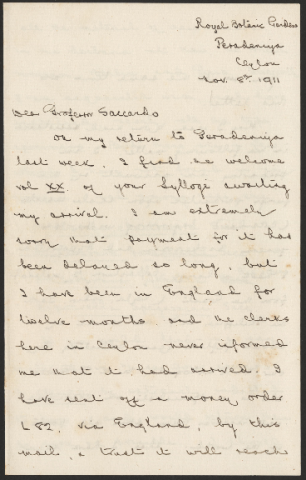 Royal Botanic Gardens
Peradeniya
Ceylon
Nov. 8th 1911
Dear Professor Saccardo
On my return to Peradeniya
last week, I find the welcome
vol XX of your Sylloge awaiting
my arrival. I am extremely
sorry that payment for it has
been delayed so long, but
I have been in England for
twelve months and the clerks
here in Ceylon never informed
me that it had arrived. I
have sent off a money order
L 82, via England, by this
mail, & trust it will reach